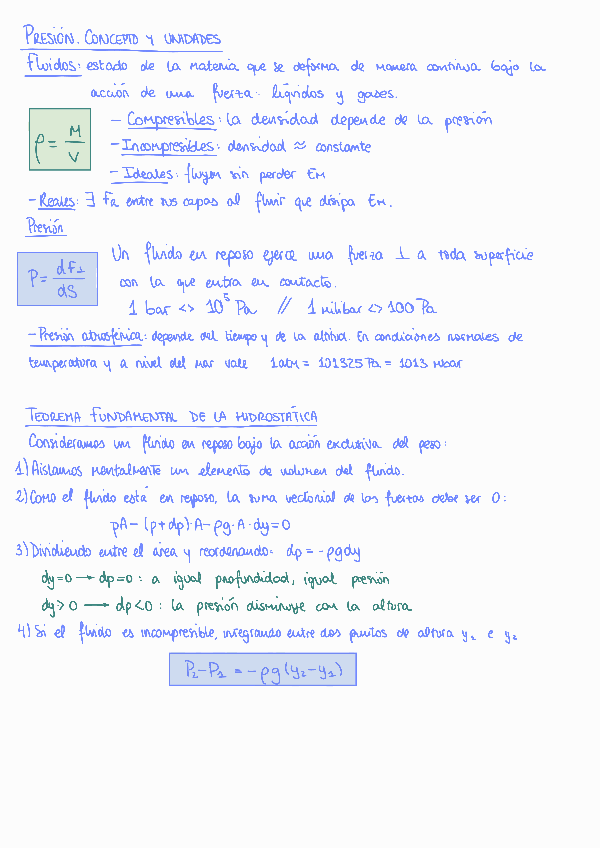 PRESIÓN. CONCEPTO Y UNIDADES
Fluidos: estado de la materia que se deforma de manera continua bajo la
acción de una fuerza: líquidos y gases.
ρ = M/V
- Compresibles: la densidad depende de la presión
- Incompresibles: densidad ≈ constante
- Ideales: fluyen sin perder EM
- Reales: ∃ FR entre sus capas al fluir que disipa EM.
Presión
P = dF⊥/dS
Un fluido en reposo ejerce una fuerza ⊥ a toda superficie
con la que entra en contacto.
1 bar <> 10⁵ Pa // 1 milibar <> 100 Pa
- Presión atmosférica: depende del tiempo y de la altitud. En condiciones normales de
temperatura y a nivel del mar vale 1atm = 101325 Pa = 1013 mbar
TEOREMA FUNDAMENTAL DE LA HIDROSTÁTICA
Consideramos un fluido en reposo bajo la acción exclusiva del peso:
1) Aislamos mentalmente un elemento de volumen del fluido.
2) Como el fluido está en reposo, la suma vectorial de las fuerzas debe ser 0:
pA - (p + dp)·A - ρg·A·dy = 0
3) Dividiendo entre el área y reordenando: dp = -ρgdy
dy = 0 → dp = 0 : a igual profundidad, igual presión
dy > 0 → dp < 0 : la presión disminuye con la altura
4) Si el fluido es incompresible, integrando entre dos puntos de altura y₁ e y₂
P₂ - P₁ = -ρg(y₂ - y₁)